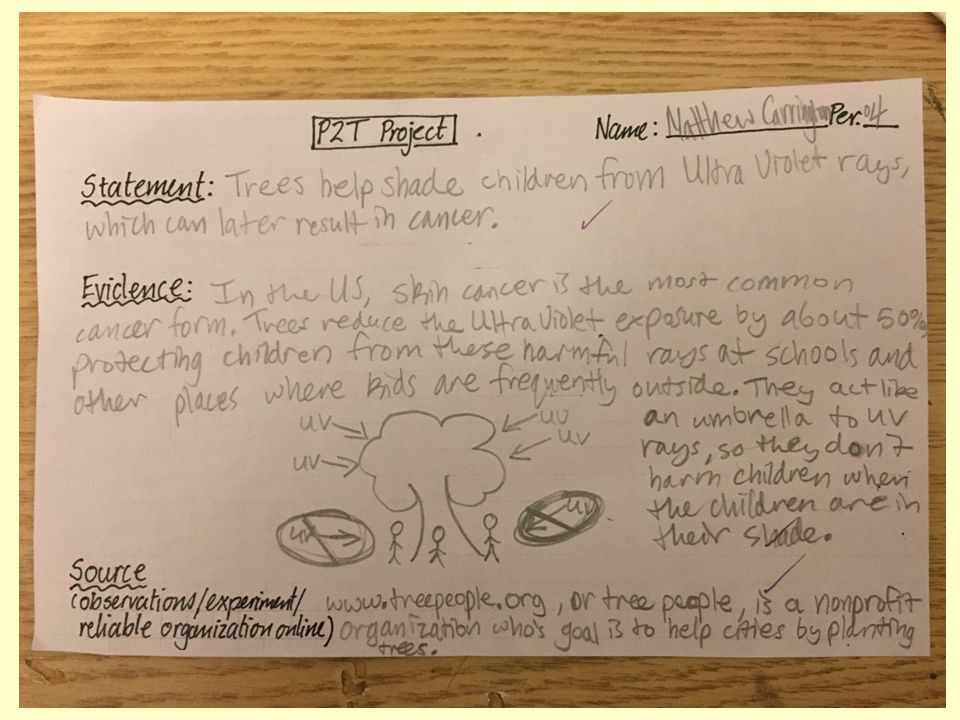 P2T Project
Name: Matthew Carrington Per. 04
Statement: Trees help shade children from Ultra Violet rays,
which can later result in cancer.
Evidence: In the US, skin cancer is the most common
cancer form. Trees reduce the Ultra Violet exposure by about 50%
protecting children from these harmful rays at schools and
other places where kids are frequently outside. They act like
an umbrella to UV
rays, so they don't
harm children when
the children are in
their shade.
UV UV
UV UV
UV UV
Source
(observations/experiment/ www.treepeople.org, or tree people, is a nonprofit
reliable organization online) organization who's goal is to help cities by planting
trees.